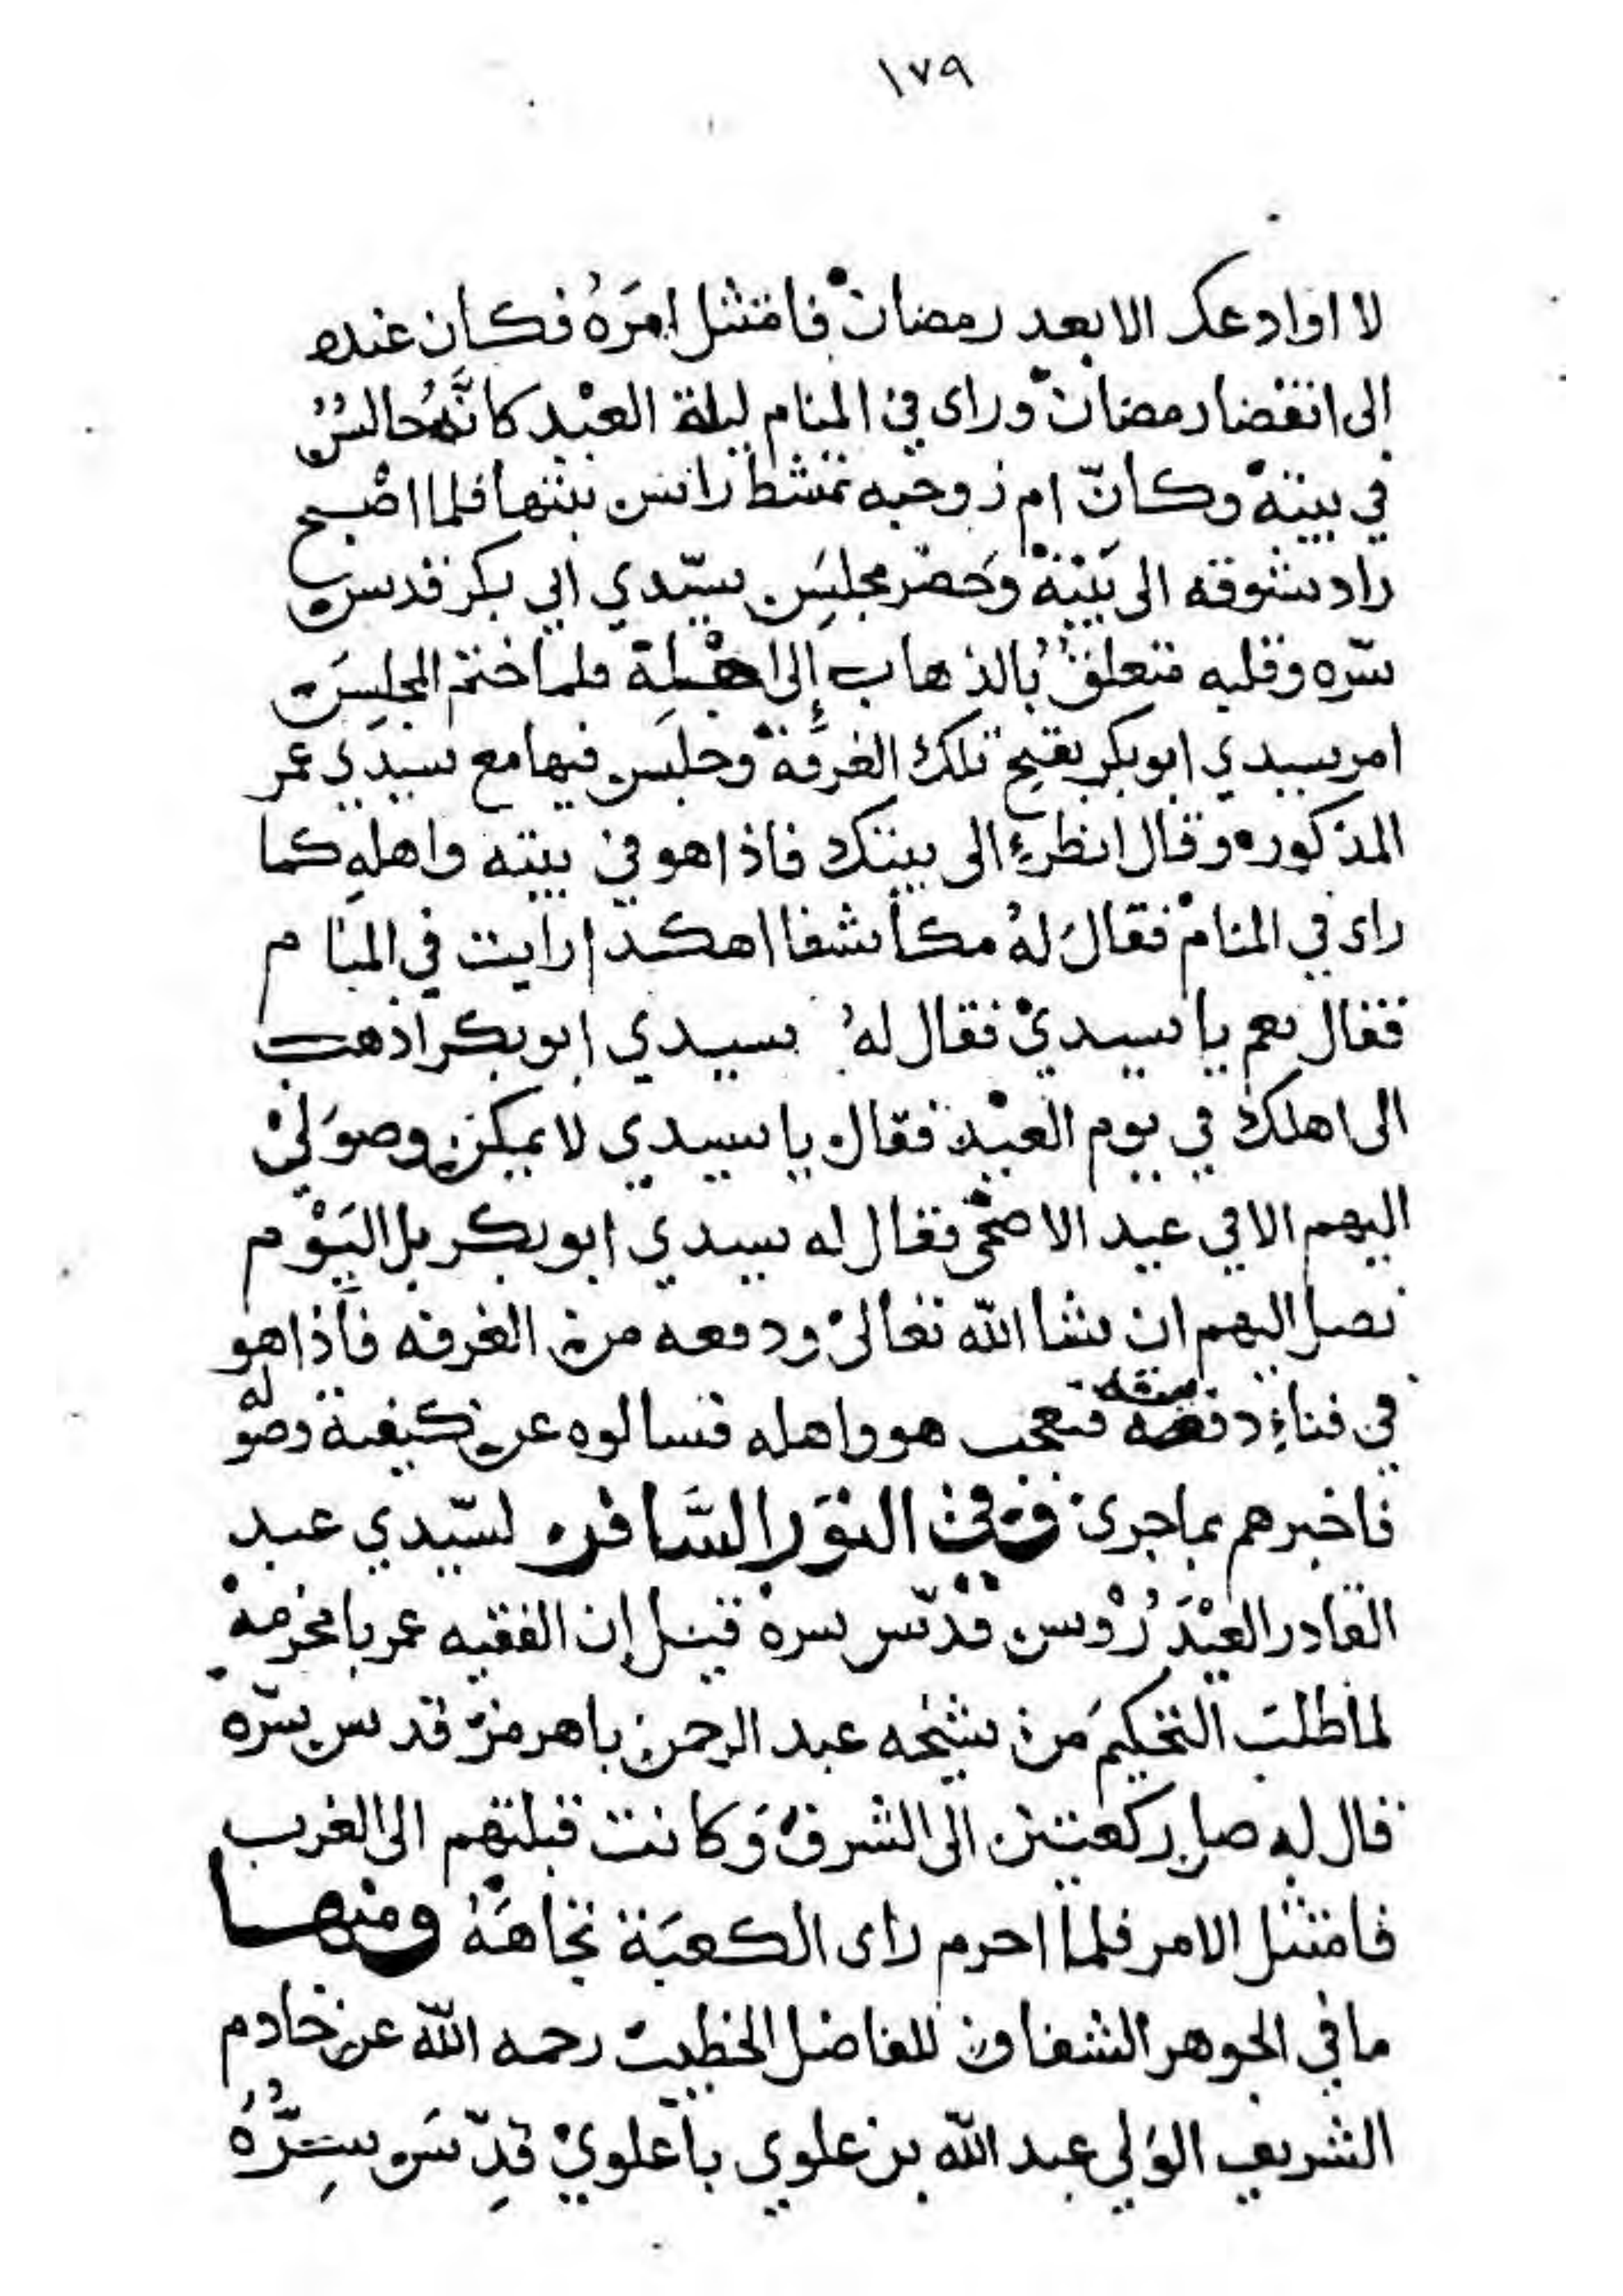 ١٧٩
لا اوادعك الا بعد رمضان فامتثل امَرَهُ فكان عنده
الى انقضا رمضان وراى في المنام ليلة العيد كانَّهُ جالسٌ
في بيته وكانّ ام زوجته تمشط راس بنتها فلما اصبح
زاد شوقه الى بَيْتِهْ وَحضر مجلِسَ سيّدي ابي بكر قدس
سّره وقلبه متعلقٌ بالذهاب إلى اهْلِهْ فلما ختم المجلِسَ
امر سيدي ابو بكر بفتح تلك الغرفة وجلس فيها مع سيدي عمر
المذكور وقال انظر الى بيتك فاذا هو في بيته واهلهِ كما
راى في المنامْ فقالَ لهُ مكاشفا اهكذا رايت في المنام
فقال نعم يا سيديْ فقال لهُ سيدي ابو بكر اذهب
الى اهلك في يوم العيْد فقال يا سيدي لا يمكن وصوَليْ
اليهم الا في عيد الاضحى فقال له سيدي ابو بكر بل اليَوْم
تصل اليهم ان شا الله تعالى ودفعه من الغرفه فاذا هو
في فناءِ بيته فتعجب هو واهله فسالوه عن كيفية وصوله
فاخبرهم بما جرى وفي النوَر السَّافر لسّيدي عبد
القادر العيْدَرُوْس قدّس سره قيل إن الفقيه عمر بامخرمهْ
لما طلبَ التحكيمَ من شيخه عبد الرحمن باهرمز قدس سّره
قال له صل ركعتين الى الشرق وَكانت قبلتهم الى الغرب
فامتثل الامر فلما احرم راى الكعبَة تجاهَهُ ومنها
ما في الجوهر الشفاف للفاضل الخطيب رحمه الله عن خادم
الشريف الوَلي عبد الله بن علوي باعلويْ قدِّسَ سِرُّهُ